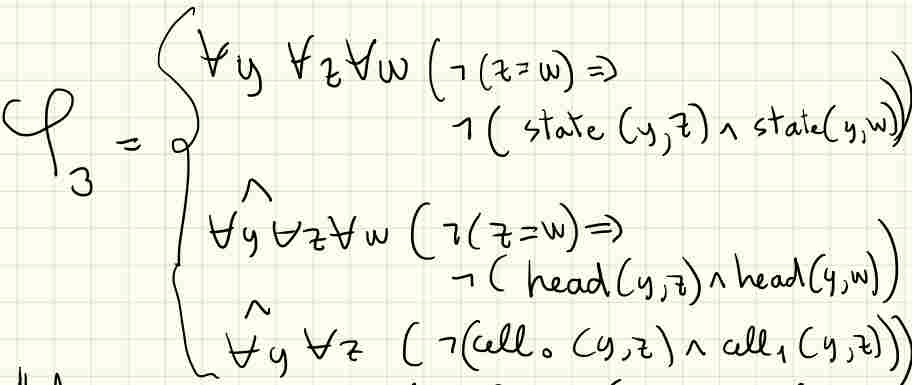 φ₃ = { ∀y ∀z ∀w (¬(z=w) ⇒
¬( state (y,z) ∧ state(y,w)))
∧
∀y ∀z ∀w (¬(z=w) ⇒
¬( head(y,z) ∧ head(y,w)))
∧
∀y ∀z (¬(cell₀ (y,z) ∧ cell₁ (y,z)))